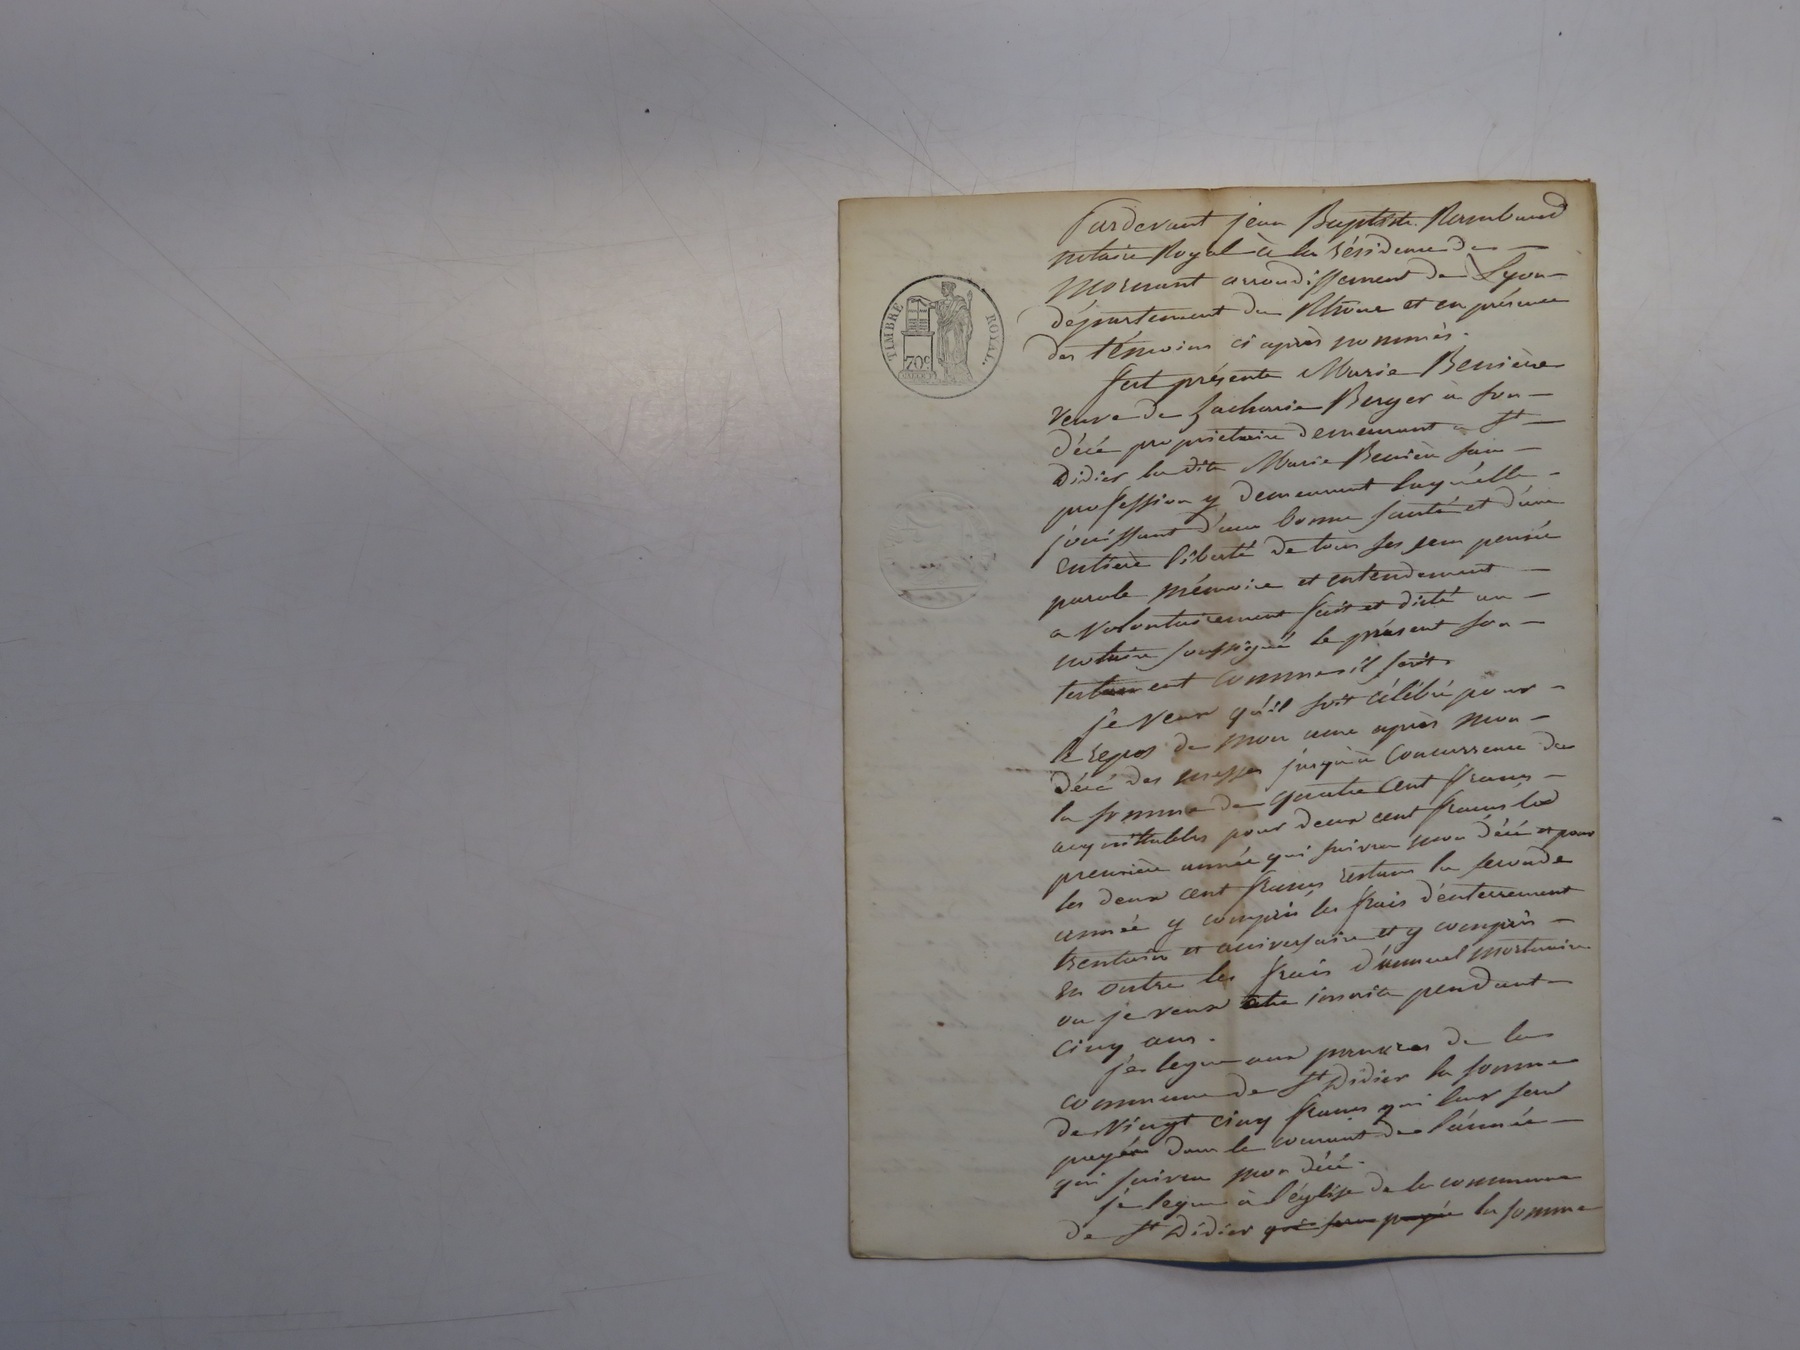 TIMBRE ROYAL.
70c
Pardevant jean Baptiste Rambaud
notaire Royal à la résidence de
Mornant arrondissement de Lyon
département du Rhône et en présence
des témoins ci après nommés.
fut présente Marie Benière
veuve de Zacharie Berger à son
décé propriétaire demeurant a St
Didier la dite Marie Benière sans
profession y demeurant laquelle
jouissant d'une bonne santé et d'une
entière liberté de tous ses sens pensée
parole mémoire et entendement
a volontairement fait et dicté au
notaire soussigné le présent son
testament comme il suit.
je veux qu'il soit célébré pour
le repos de mon ame après mon
décé des messes jusqu'à concurrence de
la somme de quatre cent francs
acquittables pour deux cent francs la
première année qui suivra mon décé et pour
les deux cent francs restans la seconde
année y compris les frais d'enterrement
trentain et aniversaire et y compris
en outre les frais d'annuel mortuaire
ou je veux etre inscrite pendant
cinq ans.
je legue aux pauvres de la
commune de St Didier la somme
de Vingt cinq francs qui leur sera
payée dans le courant de l'année
qui suivra mon décé.
je legue à l'église de la commune
de St Didier qui sera payée la somme